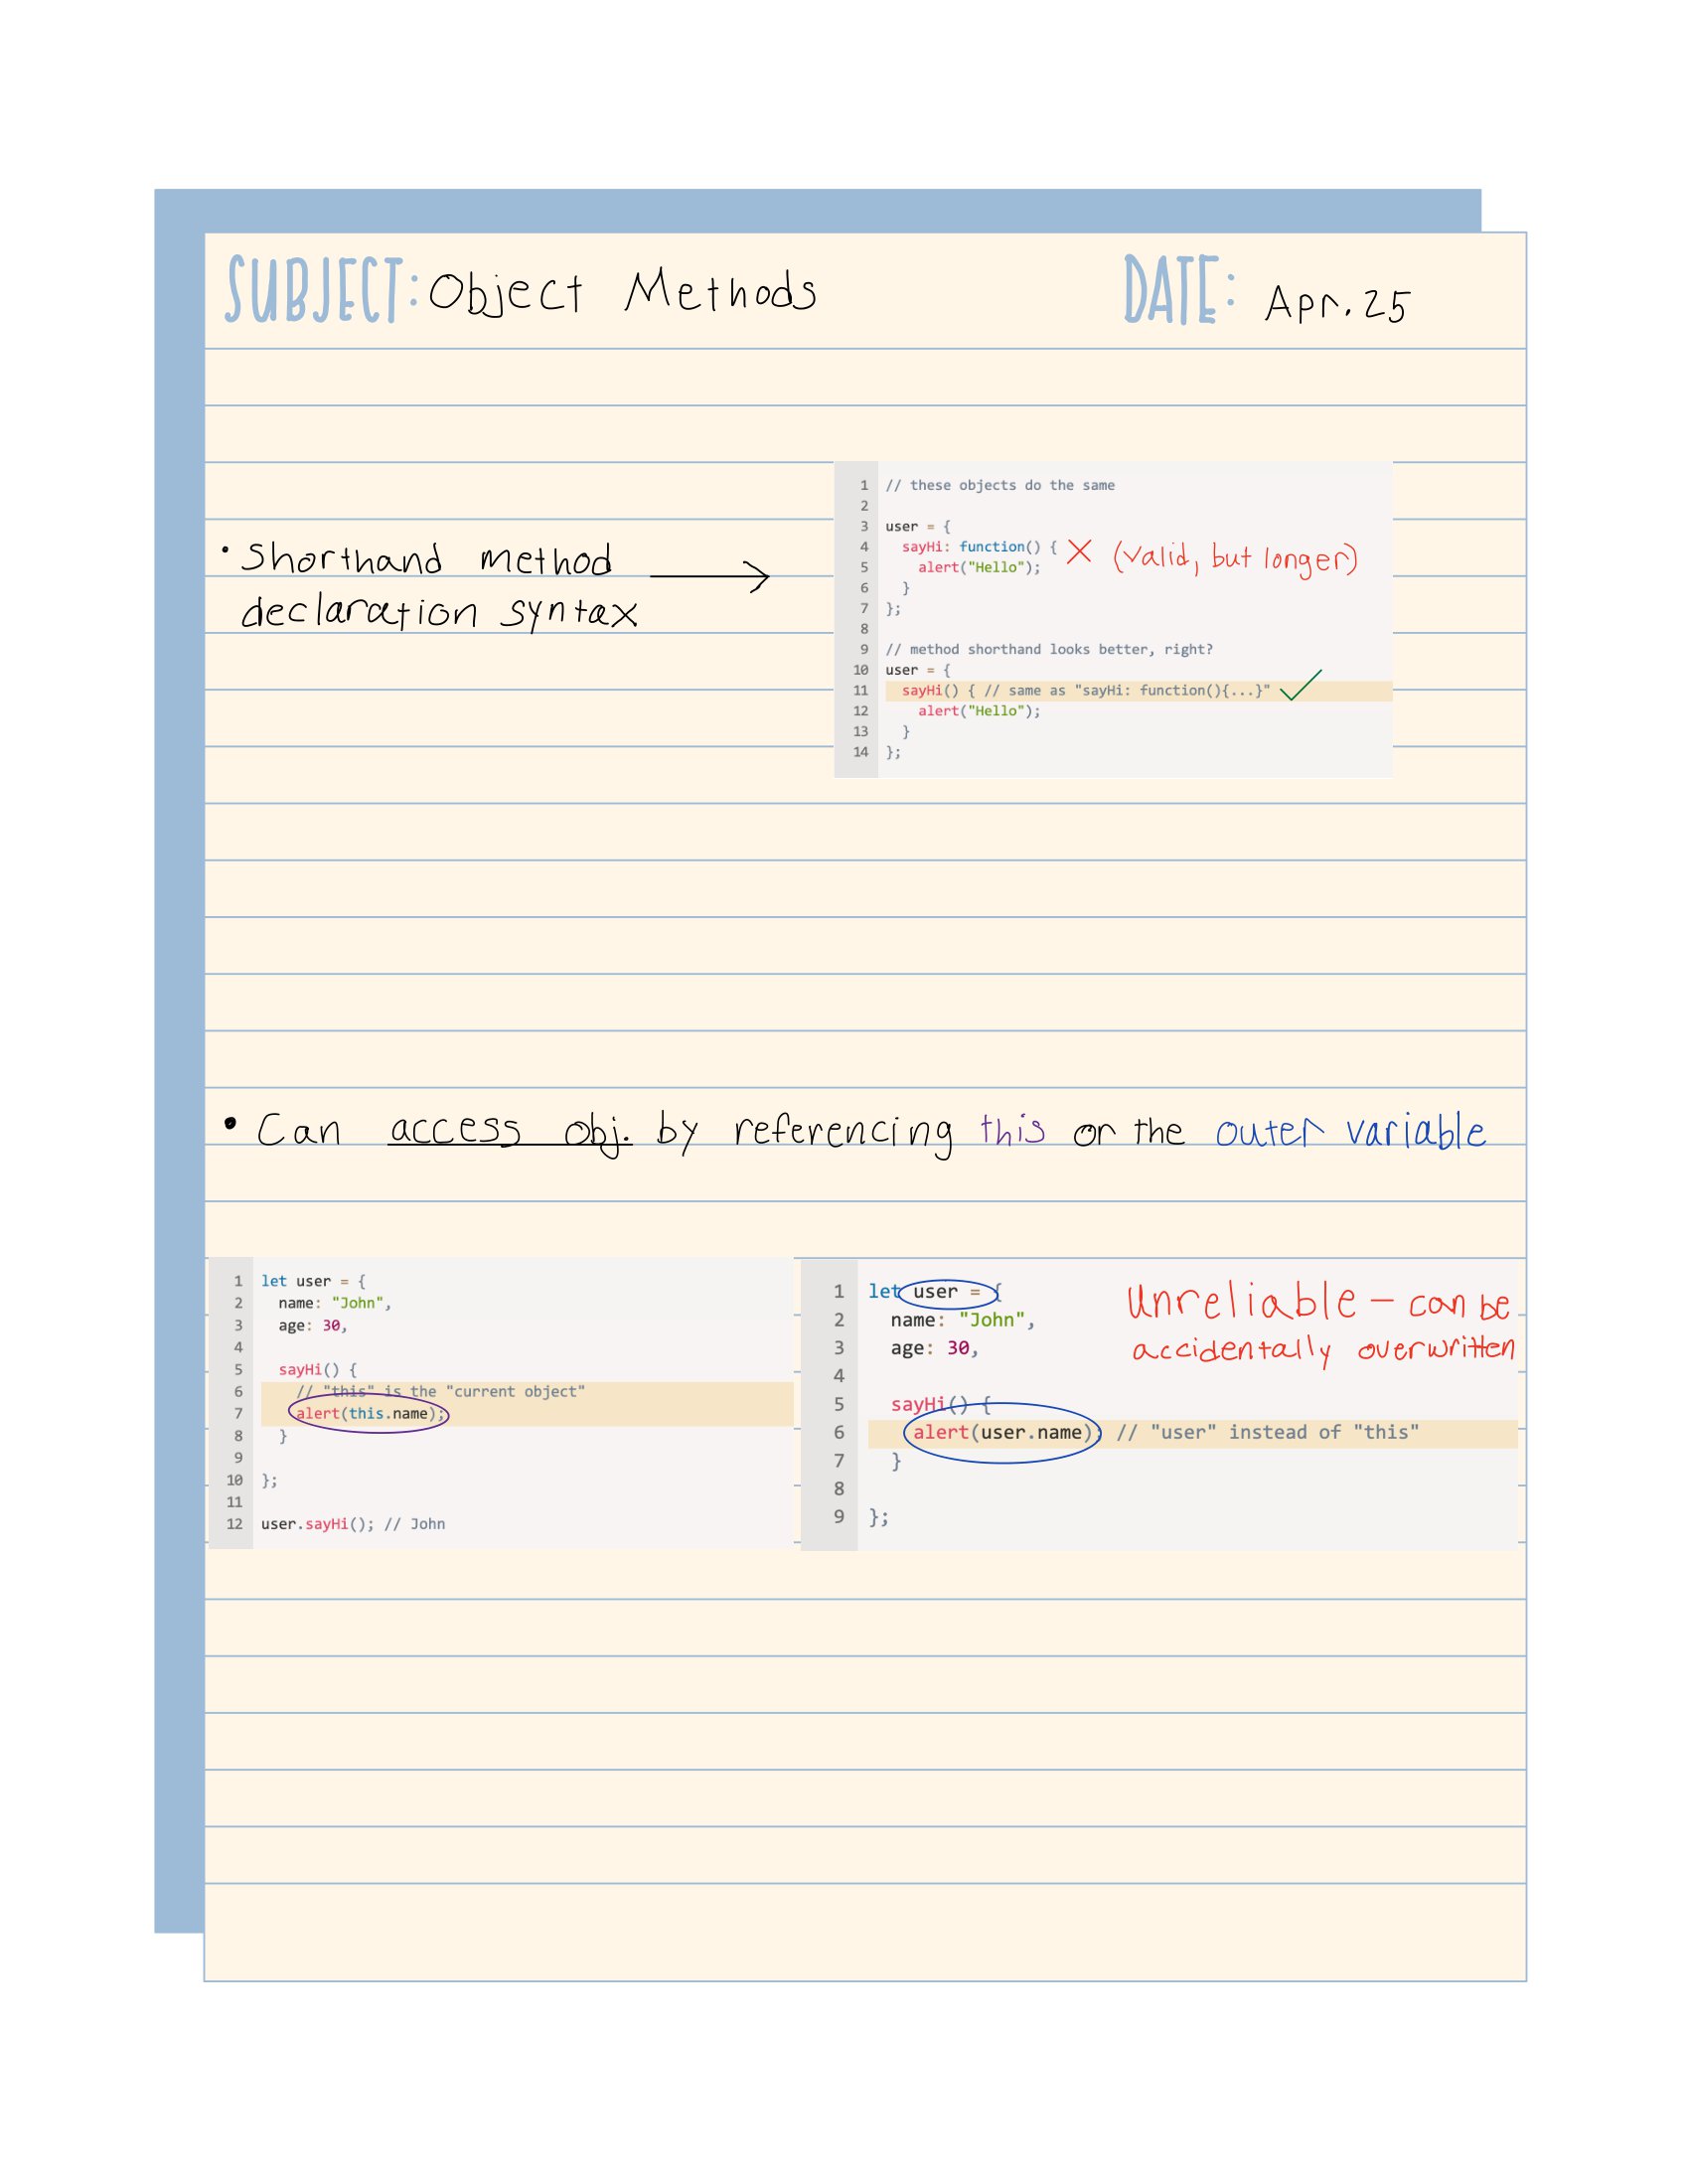 SUBJECT: Object Methods DATE: Apr. 25
1 // these objects do the same
2
3 user = {
4 sayHi: function() { X (valid, but longer)
5 alert("Hello");
6 }
7 };
8
9 // method shorthand looks better, right?
10 user = {
11 sayHi() { // same as "sayHi: function(){...}" ✓
12 alert("Hello");
13 }
14 };
• Shorthand method
declaration syntax
• Can access obj. by referencing this or the outer variable
1 let user = {
2 name: "John",
3 age: 30,
4
5 sayHi() {
6 // "this" is the "current object"
7 alert(this.name);
8 }
9
10 };
11
12 user.sayHi(); // John
1 let user = {
2 name: "John",
3 age: 30,
4
5 sayHi() {
6 alert(user.name); // "user" instead of "this"
7 }
8
9 };
Unreliable – can be
accidentally overwritten